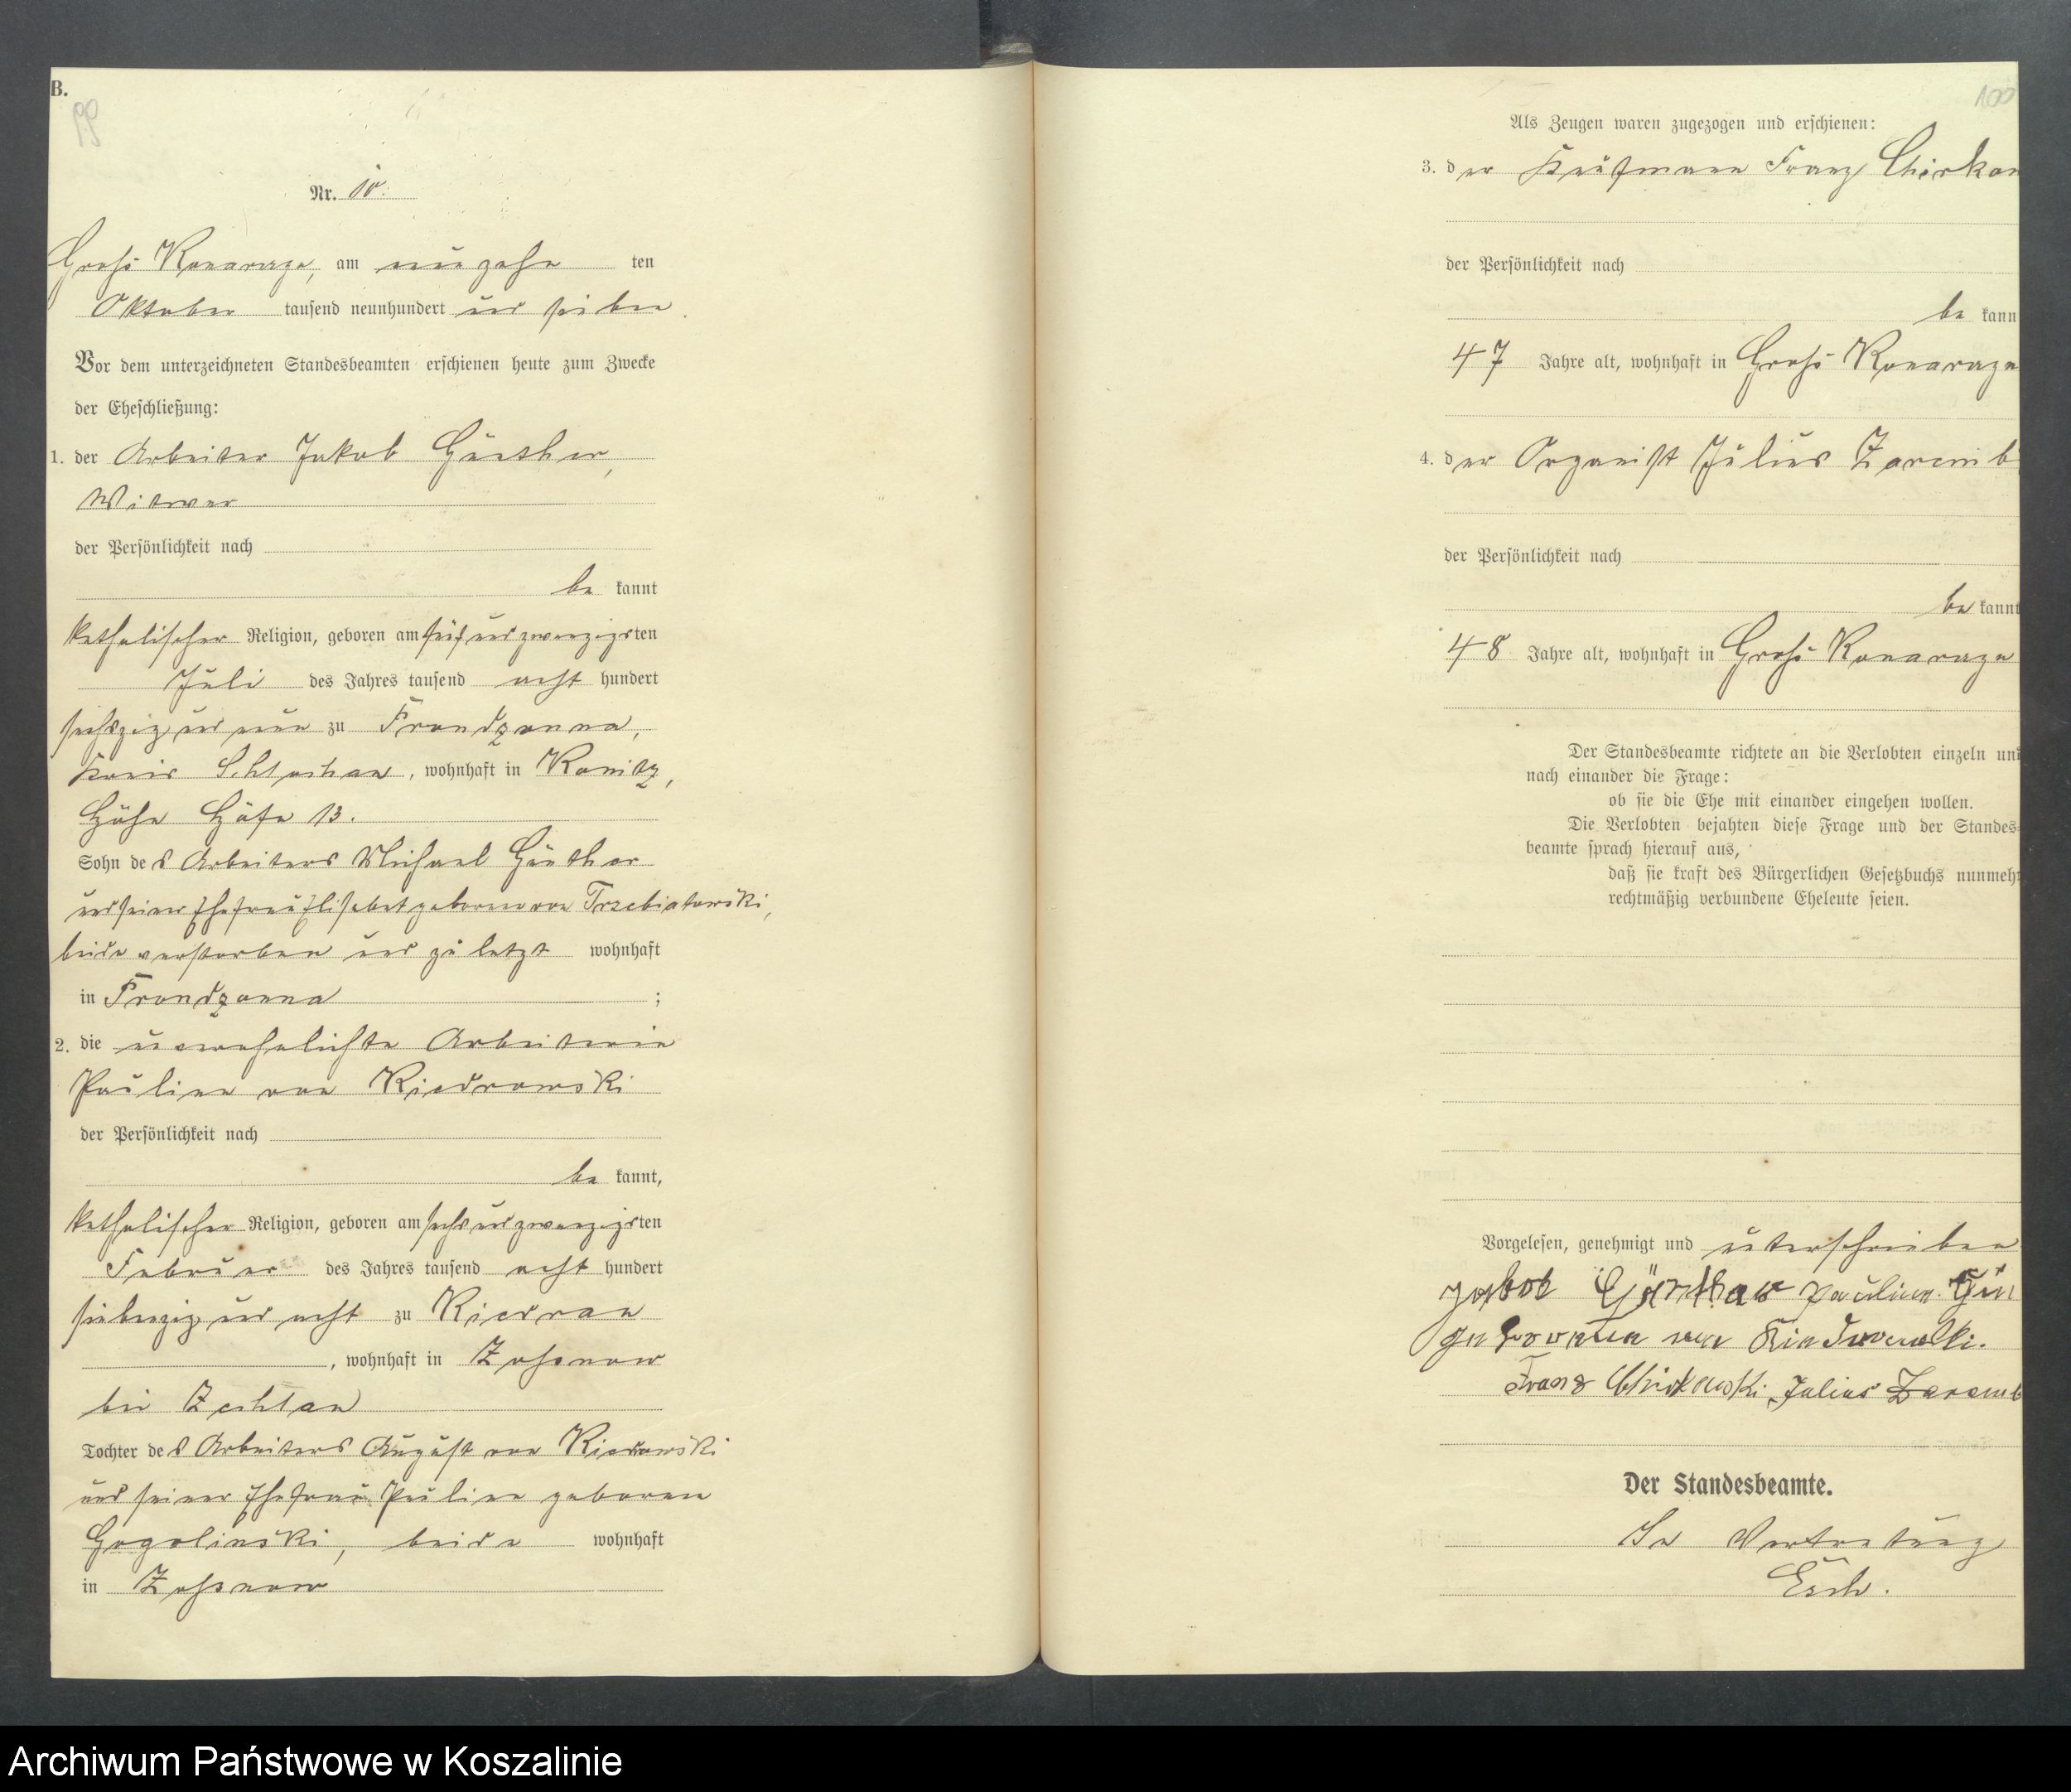 B.
99
Nr. 10.
Groß Konarczyn, am neunzehnten
Oktober tausend neunhundert und sieben.
Vor dem unterzeichneten Standesbeamten erschienen heute zum Zwecke
der Eheschließung:
1. der Arbeiter Jakob Günther,
Witwer
der Persönlichkeit nach
be kannt
katholischer Religion, geboren am fünfundzwanzigsten
Juli des Jahres tausend acht hundert
sechszig und neun zu
Kreis Schlochau, wohnhaft in Konitz,
13.
Sohn des Arbeiters Michael Günther
und seiner Ehefrau Elisabet geborenen von Trzebiatowski,
beide verstorben und zuletzt wohnhaft
in ;
2. die unverehelichte Arbeiterin
Pauline von Kiedrowski
der Persönlichkeit nach
be kannt,
katholischer Religion, geboren am sechsundzwanzigsten
Februar des Jahres tausend acht hundert
siebenzig und acht zu Kiedrau
, wohnhaft in Zossnow
bei Zechlau
Tochter des Arbeiters August von Kiedrowski
und seiner Ehefrau Pauline geborenen
Gogolinski, beide wohnhaft
in Zossnow
100
Als Zeugen waren zugezogen und erschienen:
3. der Kaufmann Franz
der Persönlichkeit nach
be kann
47 Jahre alt, wohnhaft in Groß Konarczyn
4. der Organist Julius Zaremb
der Persönlichkeit nach
be kannt
48 Jahre alt, wohnhaft in Groß Konarczyn
Der Standesbeamte richtete an die Verlobten einzeln und
nach einander die Frage:
ob sie die Ehe mit einander eingehen wollen.
Die Verlobten bejahten diese Frage und der Standes-
beamte sprach hierauf aus,
daß sie kraft des Bürgerlichen Gesetzbuchs nunmehr
rechtmäßig verbundene Eheleute seien.
Vorgelesen, genehmigt und unterschrieben
Jakob Günther Pauline Gün
geborenen von Kiedrowski.
Franz Julius Zaremb
Der Standesbeamte.
In Vertretung
Esch.
Archiwum Państwowe w Koszalinie